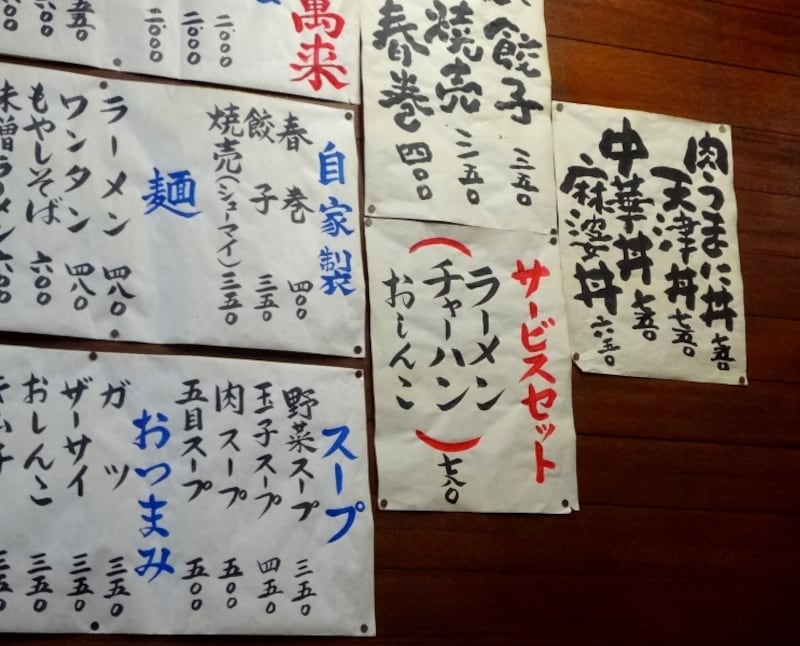 萬来
二〇〇〇
二〇〇〇
二〇〇〇
餃子 三五〇
焼売 三五〇
春巻 四〇〇
肉うまに丼 七五〇
天津丼 七五〇
中華丼 七五〇
麻婆丼 六五〇
自家製
春巻 四〇〇
餃子 三五〇
焼売(シューマイ) 三五〇
麺
ラーメン 四八〇
ワンタン 四八〇
もやしそば 六〇〇
味噌ラーメン 六〇〇
サービスセット
ラーメン
チャーハン
おしんこ
七八〇
スープ
野菜スープ 三五〇
玉子スープ 四五〇
肉スープ 五〇〇
五目スープ 五〇〇
おつまみ
ガツ 三五〇
ザーサイ 三五〇
おしんこ 三五〇
キムチ 三五〇